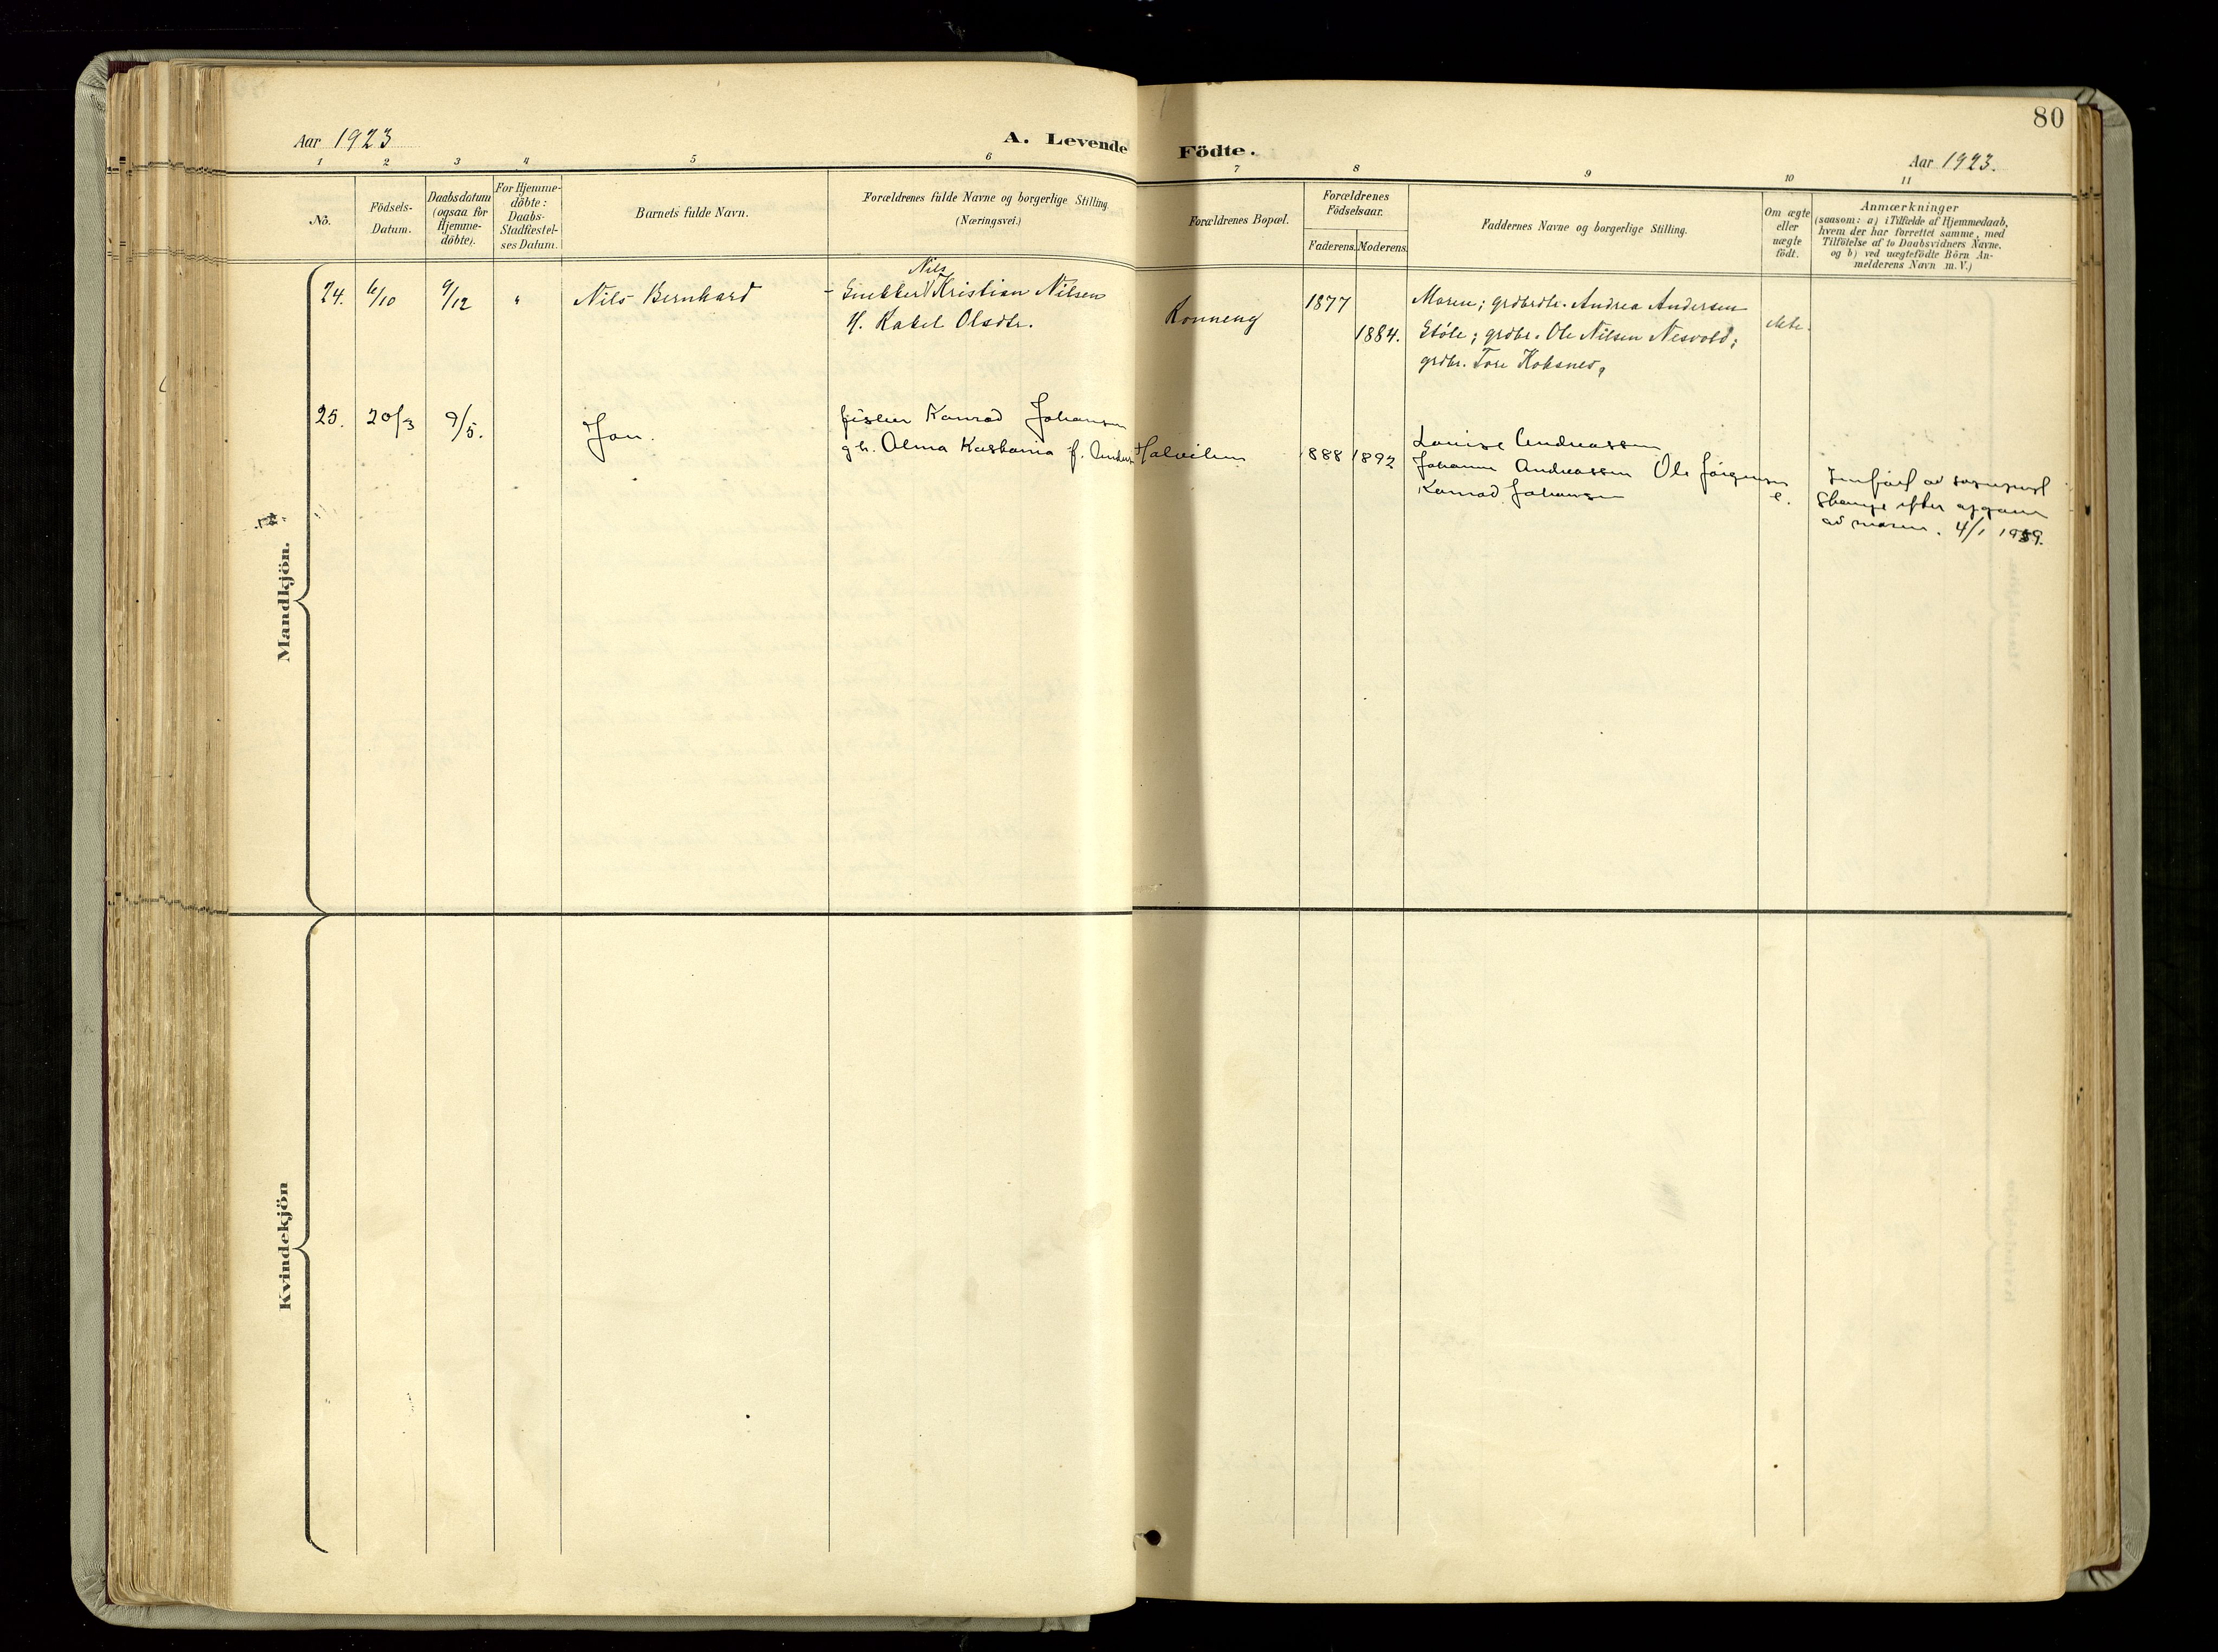 80
Aar 1923
A. Levende Födte.
Aar 1923.
1 2 3 4 5 6 7 8 9 10 11
No.
Födsels-
Datum.
Daabsdatum
(ogsaa for
Hjemme-
döbte).
For Hjemme-
döbte:
Daabs-
Stadfæstel-
ses Datum.
Barnets fulde Navn.
Forældrenes fulde Navne og borgerlige Stilling
(Næringsvei.)
Forældrenes Bopæl.
Forældrenes
Födselsaar.
Faderens. Moderens.
Faddernes Navne og borgerlige Stilling.
Om ægte
eller
uægte
födt.
Anmærkninger
(saasom: a) i Tilfælde af Hjemmedaab,
hvem der har forrettet samme, med
Tilföielse af to Daabsvidners Navne.
og b) ved uægtefödte Börn An-
melderens Navn m. V.)
Mandkjön.
24. 6/10 9/12 " Nils Bernhard
Nils
- Snekker Kristian Nilsen
H. Rakel Olsdtr.
1877
1884.
Moren; grdbrdtr. Andrea Andersen
Støle; grdbr. Ole Nilsen Nesvold;
grdbr. Tore
ekte.
25. 20/3 9/5. Jan.
fisker Konrad Johansen
g. h. Alma f.
1888 1892
Louise Andreassen
Johann Andreassen Ole Jörgensen
Konrad Johansen
e.
Innført av sogneprest
efter opgave
av moren. 4/1 1939.
Kvindekjön